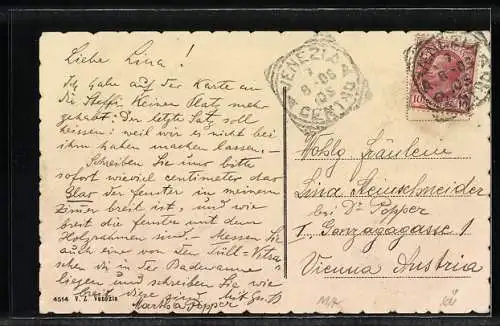 Liebe Lina!
Ich habe auf der Karte an
die Steffi keinen Platz mehr
gehabt. Der letzte Satz soll
heissen: weil wir es nicht bei
ihm haben machen lassen.
Schreiben Sie mir bitte
sofort wieviel centimeter das
Glas der fenster in meinem
Zimmer breit ist, und wie
breit die fenster mit dem
Holzrahmen sind. Messen Sie
auch eine von den Tüll
in der Badewanne
liegen und schreiben Sie wie
breit diese sind. Mit Gruß
Martha Popper
4514 V. Z. VENEZIA
VENEZIA
CENTRO
8 08
10
VENEZIA
CENTRO
Wohlg. Fräulein
Lina Steinschneider
bei Dr Popper
I. Gonzagagasse 1
Vienna Austria